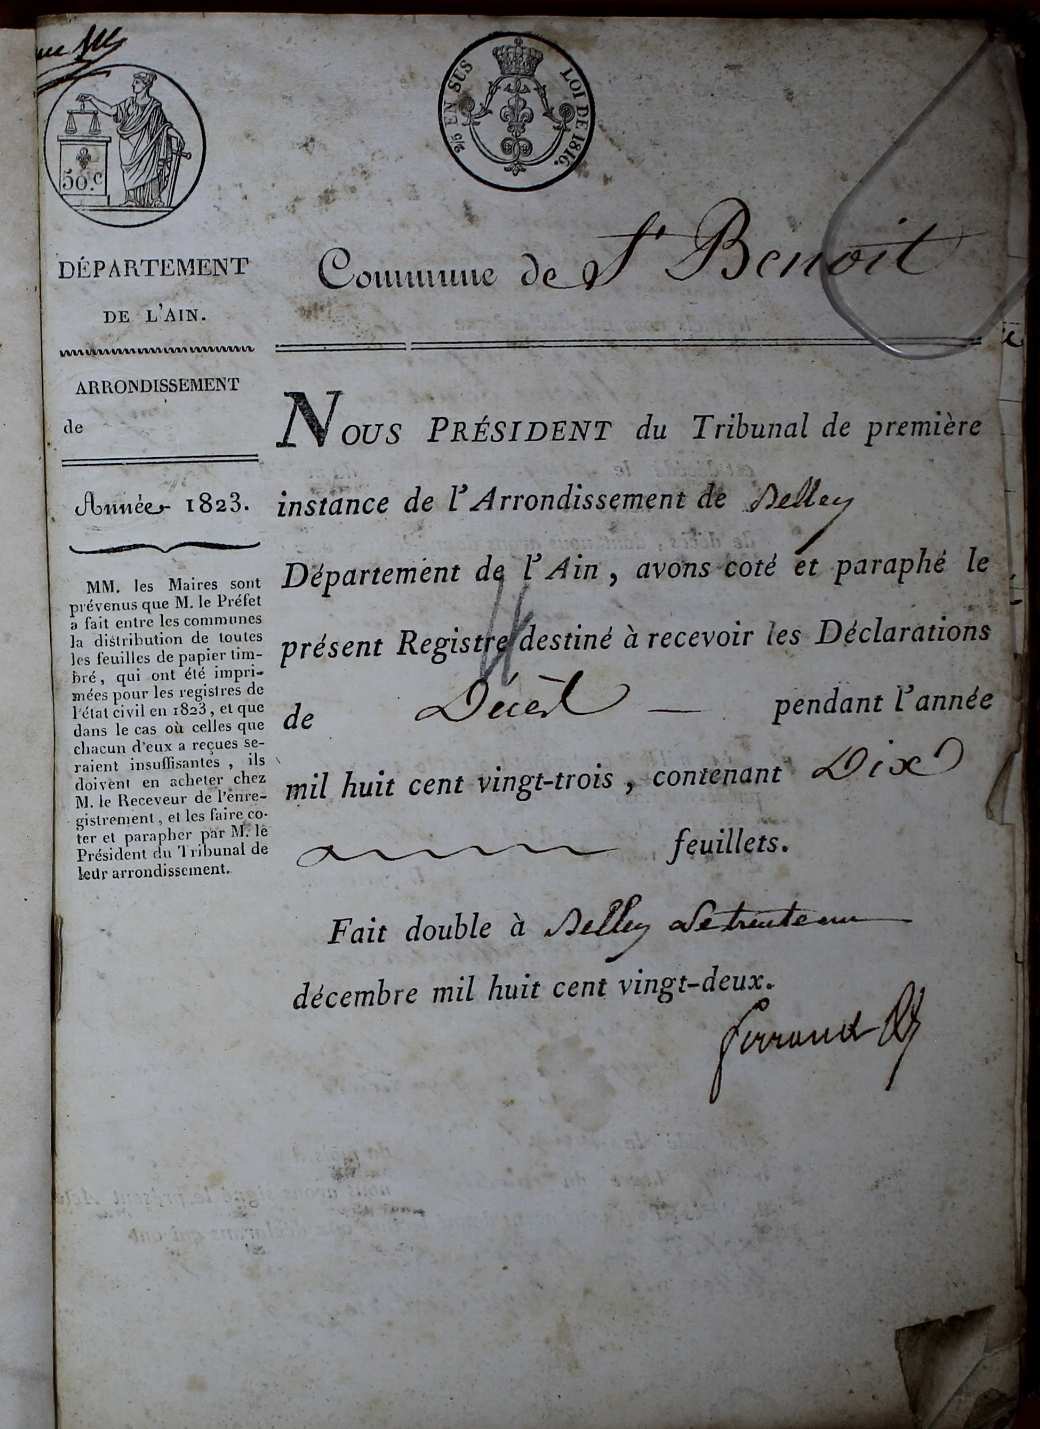 50.c
2/5 EN SUS
LOI DE 1816.
DÉPARTEMENT
DE L'AIN.
ARRONDISSEMENT
de
Année 1823.
MM. les Maires sont
prévenus que M. le Préfet
a fait entre les communes
la distribution de toutes
les feuilles de papier tim-
bré, qui ont été impri-
mées pour les registres de
l'état civil en 1823, et que
dans le cas où celles que
chacun d'eux a reçues se-
raient insuffisantes, ils
doivent en acheter chez
M. le Receveur de l'enre-
gistrement, et les faire co-
ter et parapher par M. le
Président du Tribunal de
leur arrondissement.
Commune de St Benoit
NOUS PRÉSIDENT du Tribunal de première
instance de l'Arrondissement de Belley
Département de l'Ain, avons coté et paraphé le
présent Registre destiné à recevoir les Déclarations
de Décès — pendant l'année
mil huit cent vingt-trois, contenant Dix
feuillets.
Fait double à Belley le trente un
décembre mil huit cent vingt-deux.